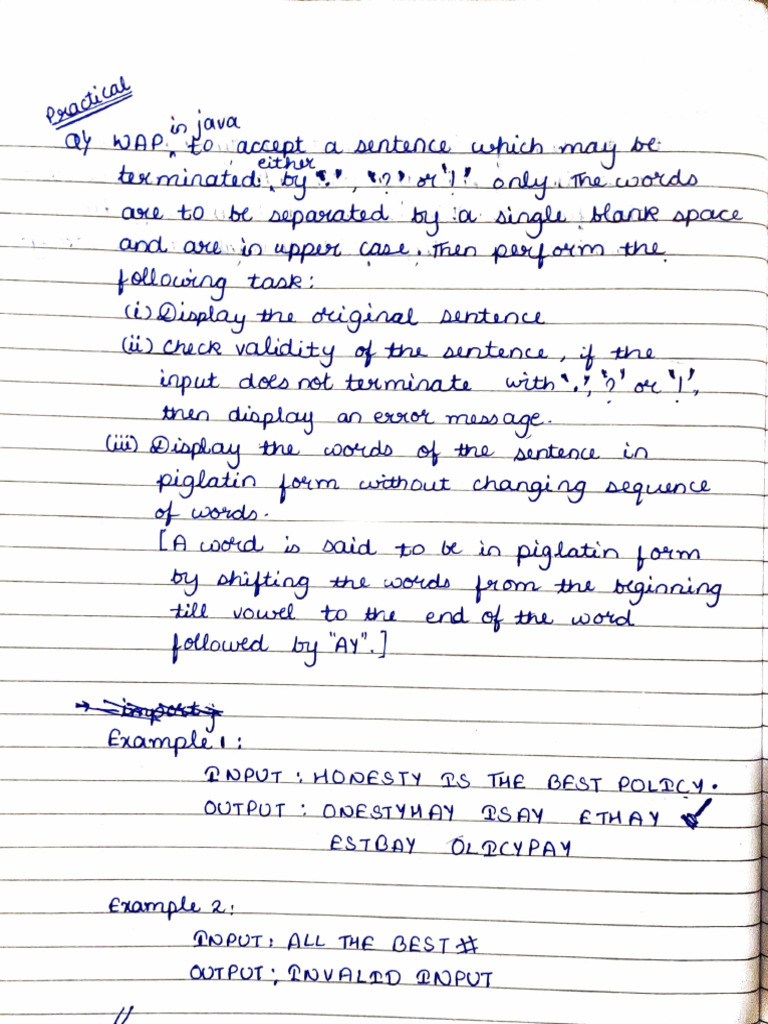 Practical
Q) WAP in java to accept a sentence which may be
terminated either by '.', '?' or '!' only. The words
are to be separated by a single blank space
and are in upper case. Then perform the
following task:
(i) Display the original sentence
(ii) check validity of the sentence, if the
input does not terminate with '.', '?' or '!',
then display an error message.
(iii) Display the words of the sentence in
piglatin form without changing sequence
of words.
[A word is said to be in piglatin form
by shifting the words from the beginning
till vowel to the end of the word
followed by "AY".]
Example 1:
INPUT : HONESTY IS THE BEST POLICY.
OUTPUT : ONESTYHAY ISAY ETHAY
ESTBAY OLICYPAY
Example 2:
INPUT: ALL THE BEST #
OUTPUT: INVALID INPUT